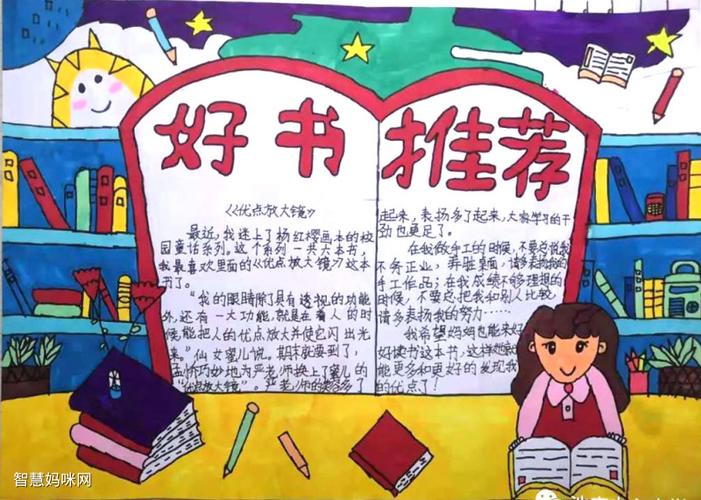 好书推荐
《优点放大镜》
最近,我迷上了杨红樱画本的校
园童话系列。这个系列一共六本书,
我最喜欢里面的《优点放大镜》这本
书了。
“我的眼睛除了具有透视的功能
外,还有一大功能,就是在看人的时
候能把人的优点放大并使它闪出光
来。”仙女蜜儿说。期末就要到了,
巧妙地为严老师换上了蜜儿的
“优点放大镜”。严老师的笑容多了
起来,表扬多了起来,大家学习的干
劲也更足了。
在我做手工的时候,不要总说我
不务正业,弄脏桌面,请多表扬我的
手工作品;在我成绩不够理想的
时候,不要总把我和别人比较,
请多表扬我的努力……
我希望妈妈也能来好
好读书这本书,这样
能更多和更好的发现我
的优点了!
智慧妈咪网